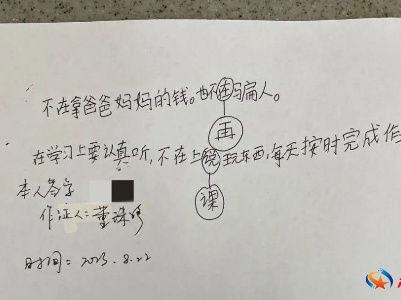 不在拿爸爸妈妈的钱。也不在骗人。
再
在学习上要认真听,不在上说玩东西,每天按时完成作
课
本人签字
作证人:董
时间=2023.8.22